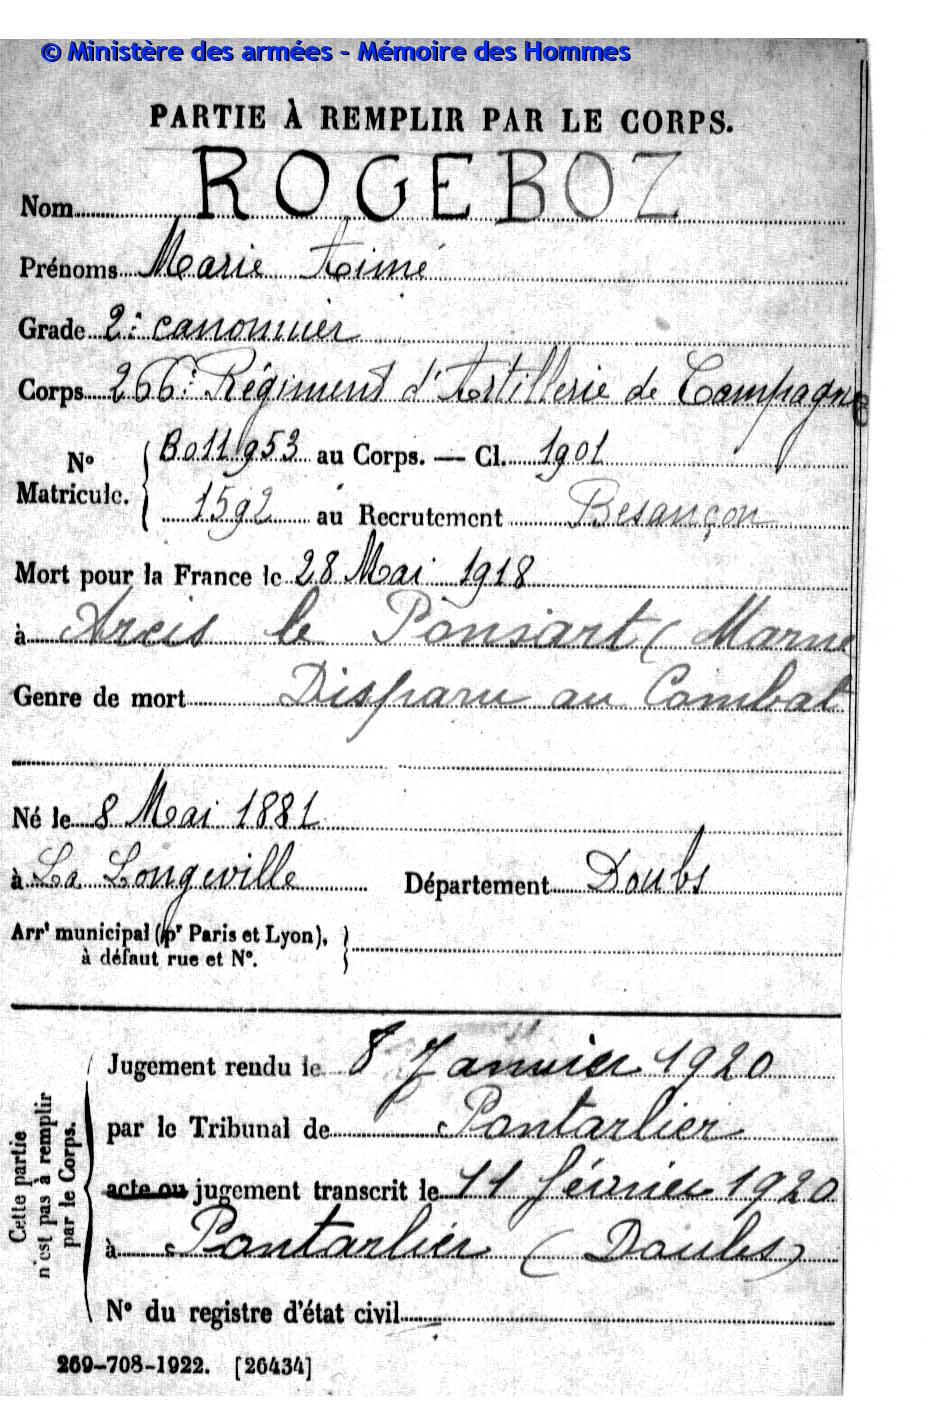 © Ministère des armées - Mémoire des Hommes
PARTIE À REMPLIR PAR LE CORPS.
Nom ROGEBOZ
Prénoms Marie Aimé
Grade 2e canonnier
Corps 266e Régiment d'Artillerie de Campagne
N° Matricule. { B011953 au Corps. — Cl. 1901
1592 au Recrutement Besançon
Mort pour la France le 28 Mai 1918
à Arcis le Ponsart (Marne
Genre de mort Disparu au Combat
Né le 8 Mai 1881
à La Longeville Département Doubs
Arrt municipal (pr Paris et Lyon), }
à défaut rue et N°.
Cette partie n'est pas à remplir par le Corps.
Jugement rendu le 8 Janvier 1920
par le Tribunal de Pontarlier
acte ou jugement transcrit le 11 février 1920
à Pontarlier (Doubs)
N° du registre d'état civil
269-708-1922. [26434]